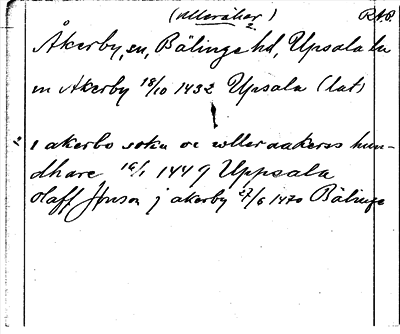 (Ulleråker) RAP
Åkerby, sn, Bälinge hd, Upsala ln
in Akerby 18/10 1432 Upsala (lat)
i akerbo sokn oc wlleraakers hun-
dhare 16/1 1449 Uppsala
Olaff Jonson j akerby 27/6 1470 Bälinge